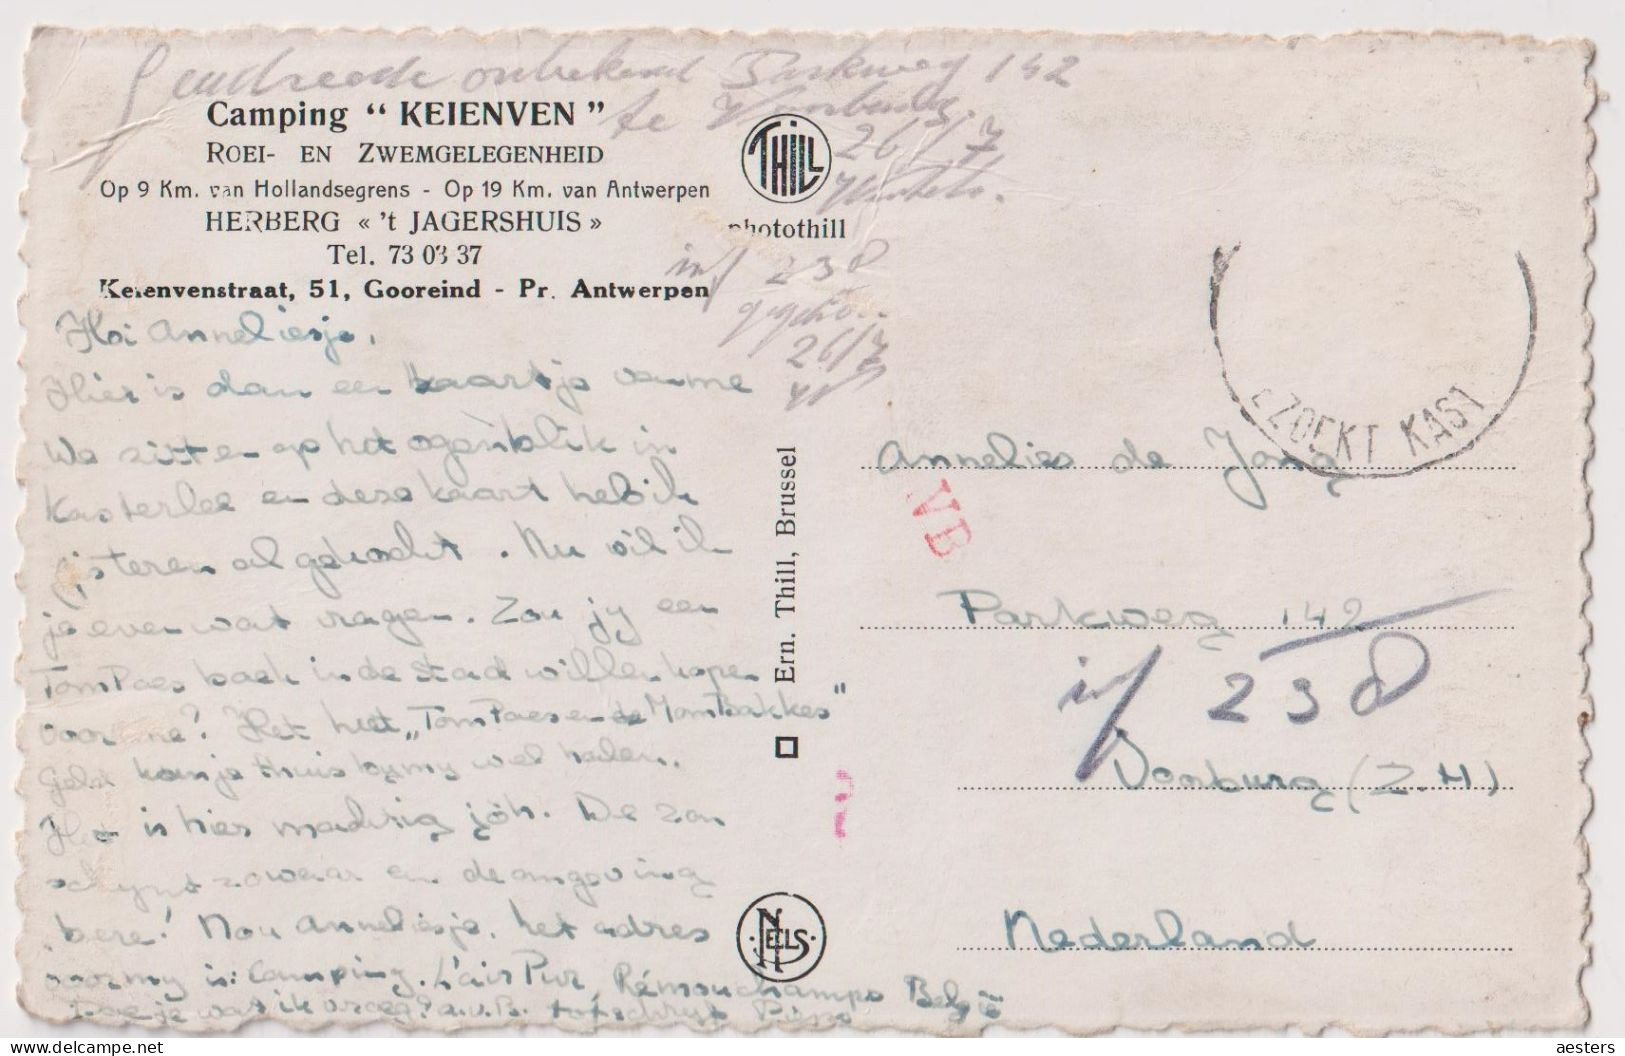 Geadresseerde onbekend Parkweg 142
te Voorburg.
26/7
Camping “ KEIENVEN ”
ROEI- EN ZWEMGELEGENHEID
Op 9 Km. van Hollandsegrens - Op 19 Km. van Antwerpen
HERBERG « 't JAGERSHUIS »
Tel. 73 03 37
Keienvenstraat, 51, Gooreind - Pr. Antwerpen
THILL
photothill
inf 238
26/7
Hoi Anneliesje,
Hier is dan een kaartje van me
We zitten op het ogenblik in
Kasterlee en deze kaart heb ik
gisteren al gekocht. Nu wil ik
je even wat vragen. Zou jy een
Tom Poes boek in de stad willen kopen
voor me? Het heet „Tom Poes en de Mombakkes"
Geld kan je thuis by my wel halen.
Het is hier machtig jôh. De zon
schynt zowaar en de omgeving
bere! Nou Anneliesje, het adres
voor my is: Camping. L'air Pur, Rémouchamps België
Doe je wat ik vroeg? a.u.B. tot schryfs
Ern. Thill, Brussel
NELS
EZOEKT KAST
Annelies de Jong
VB
Parkweg 142
inf 238
Voorburg (Z.H)
Nederland
aesters